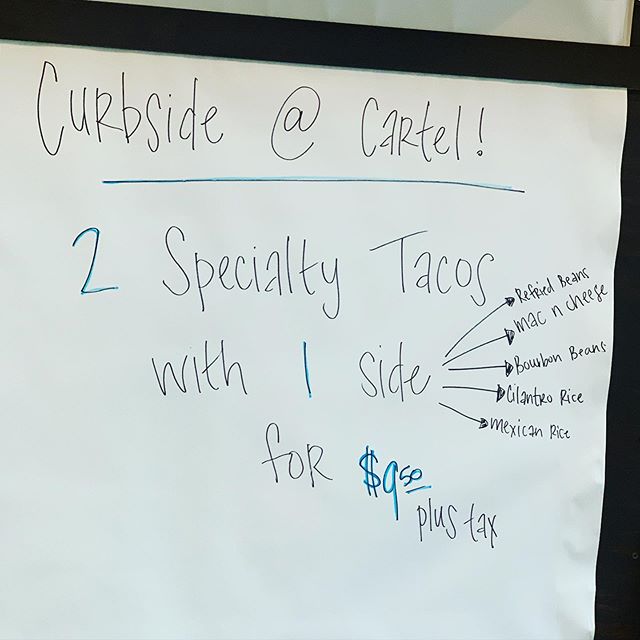 Curbside @ Cartel!
2 Specialty Tacos
with 1 side
Refried Beans
mac n cheese
Bourbon Beans
Cilantro Rice
mexican Rice
for $9.50
plus tax